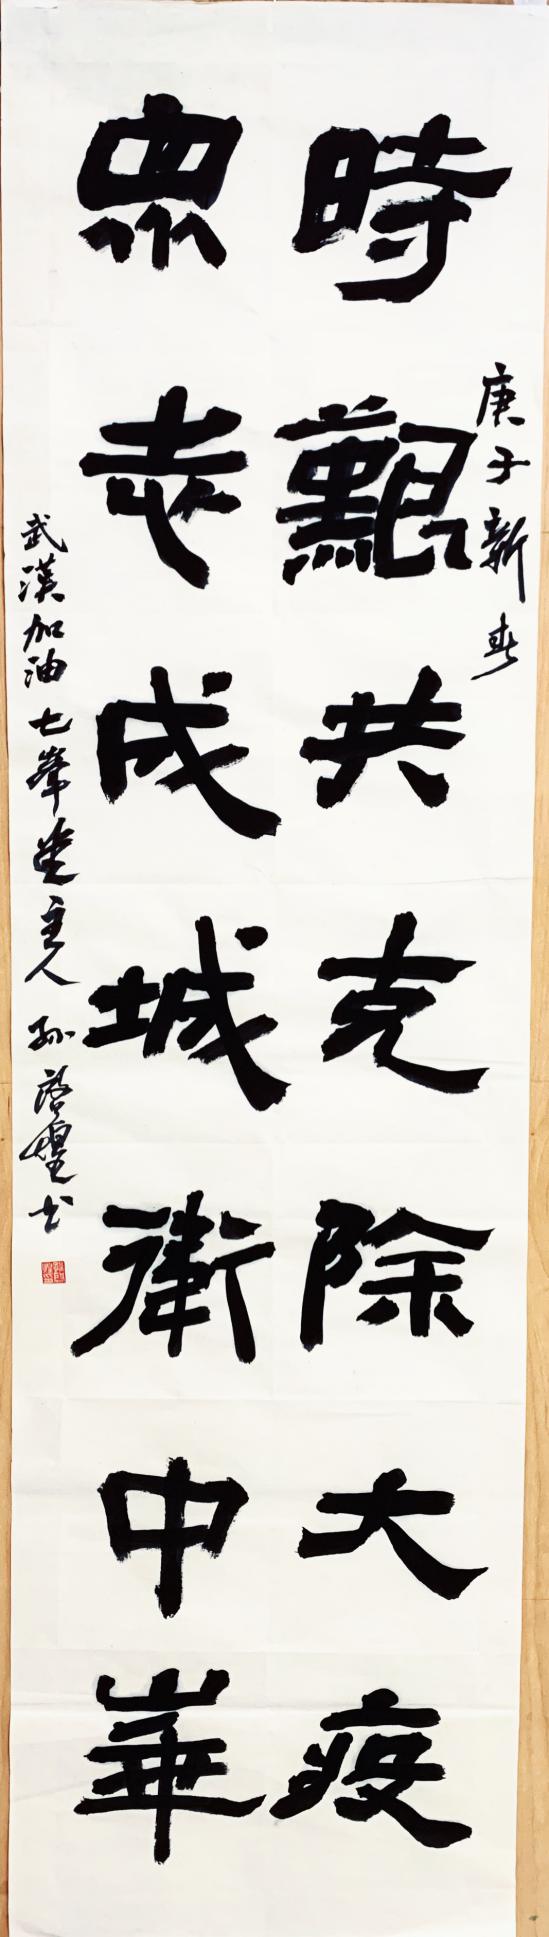 庚子新春
時艱共克除大疫
眾志成城衛中華
武漢加油七峯堂主人孙啓煌书